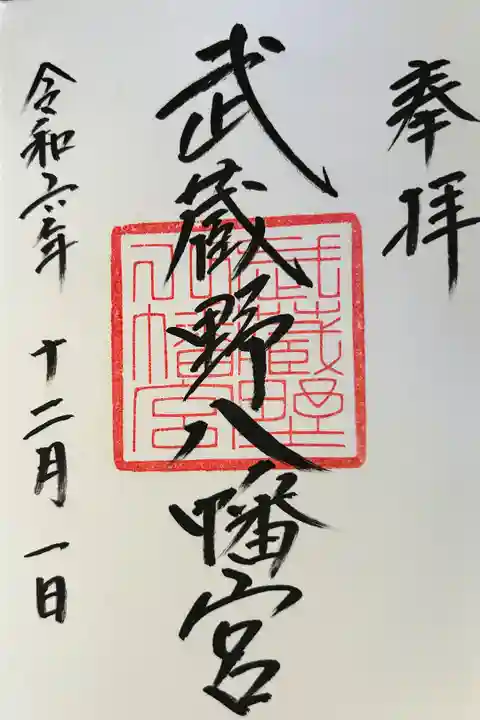 奉拝
武蔵野八幡宮
武蔵野
八幡宮
令和六年 十二月一日